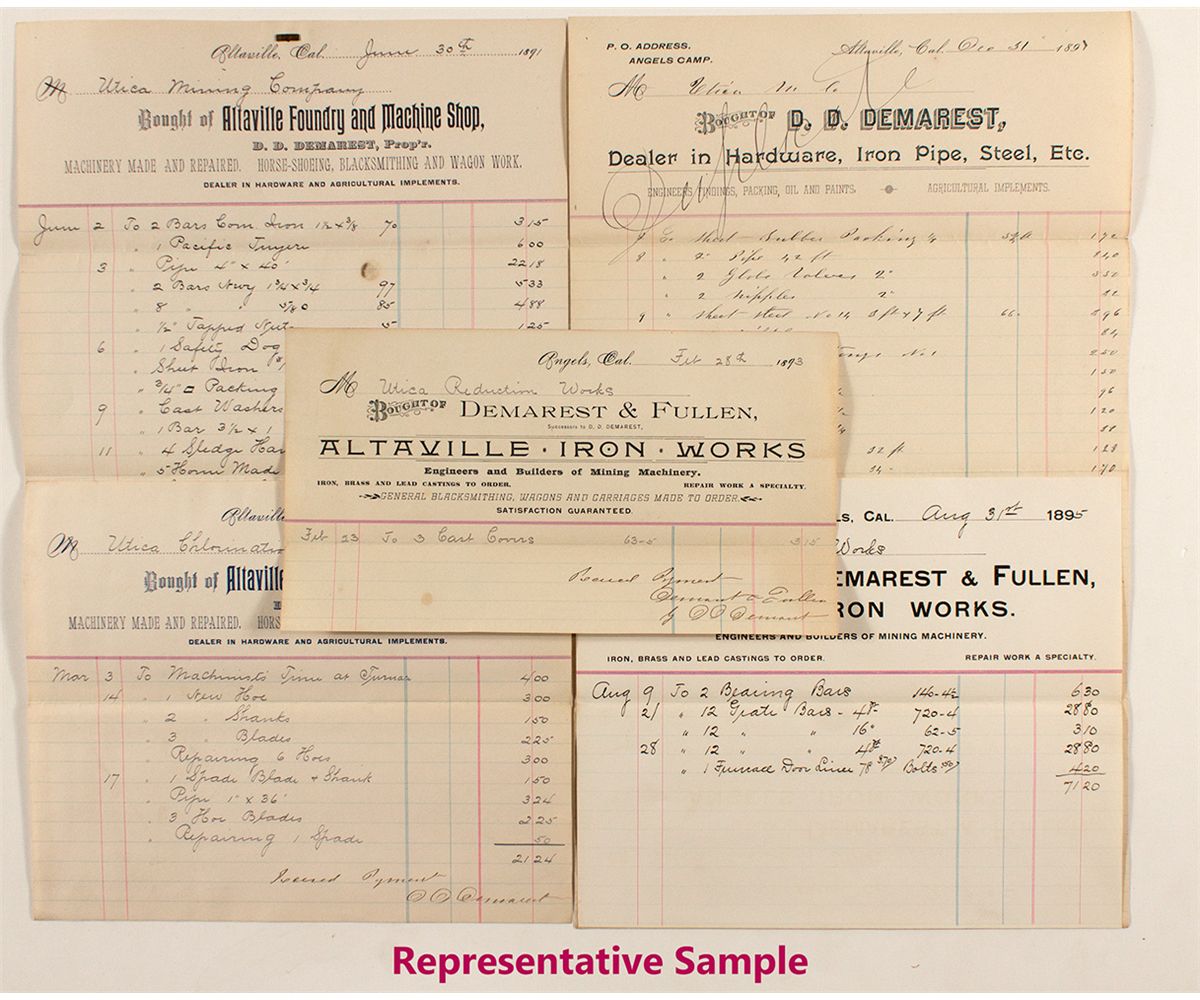 Altaville, Cal. June 30th 1891
M Utica Mining Company
Bought of Altaville Foundry and Machine Shop,
D. D. DEMAREST, Prop'r.
MACHINERY MADE AND REPAIRED. HORSE-SHOEING, BLACKSMITHING AND WAGON WORK.
DEALER IN HARDWARE AND AGRICULTURAL IMPLEMENTS.
June 2 To 2 Bars Com. Iron 1½ x 3/8 70 315
" 1 Pacific Tuyere 600
3 " Pipe 4" x 40' 2218
" 2 Bars Nwy 1¾ x ¾ 97 533
" 8 " " 85 488
" ½" Tapped Nuts 5 125
6 " 1 Safety Dog
" Sheet Iron
" ¾" □ Packing
9 " Cast Washers
" 1 Bar 3½ x 1
11 " 4 Sledge Han
" 5 Home Made
P. O. ADDRESS,
ANGELS CAMP.
Altaville, Cal. Dec 31 189
M Utica M Co
BOUGHT OF D. D. DEMAREST,
Dealer in Hardware, Iron Pipe, Steel, Etc.
ENGINEERS FINDINGS, PACKING, OIL AND PAINTS. AGRICULTURAL IMPLEMENTS.
Duplicate
To Sheet Rubber Packing
8 " 2" Pipe 42 ft
" 2 Globe Valves 2"
" 2 Nipples 2"
9 " Sheet Steel No 14 3 ft x 7 ft 66 896
No 1 250
150
96
120
32 ft 128
170
Angels, Cal. Feb 28th 1893
M Utica Reduction Works
BOUGHT OF DEMAREST & FULLEN,
Successors to D. D. DEMAREST,
ALTAVILLE · IRON · WORKS
Engineers and Builders of Mining Machinery.
IRON, BRASS AND LEAD CASTINGS TO ORDER. REPAIR WORK A SPECIALTY.
GENERAL BLACKSMITHING, WAGONS AND CARRIAGES MADE TO ORDER.
SATISFACTION GUARANTEED.
Feb 23 To 3 Cast Covers 63-5 315
Received Payment
Demarest & Fullen
D D Demarest
Altaville
M Utica Chlorinatio
Bought of Altaville
MACHINERY MADE AND REPAIRED. HORS
DEALER IN HARDWARE AND AGRICULTURAL IMPLEMENTS.
Mar 3 To Machinists Time at Furnace 400
14 " 1 New Hoe 300
" 2 " Shanks 150
" 3 " Blades 225
" Repairing 6 Hoes 300
17 " 1 Spade Blade & Shank 150
" Pipe 1" x 36' 324
" 3 Hoe Blades 225
" Repairing 1 Spade 50
2124
Received Payment
D D Demarest
LS, CAL. Aug 31st 1895
Works
EMAREST & FULLEN,
RON WORKS.
ENGINEERS AND BUILDERS OF MINING MACHINERY.
IRON, BRASS AND LEAD CASTINGS TO ORDER. REPAIR WORK A SPECIALTY.
Aug 9 To 2 Bearing Bars 140-4½ 630
21 " 12 Grate Bars - 4ft 720-4 2880
" 12 " " 16" 62-5 310
28 " 12 " " 4ft 720-4 2880
" 1 Furnace Door Liner 78 Bolts 420
7120
Representative Sample